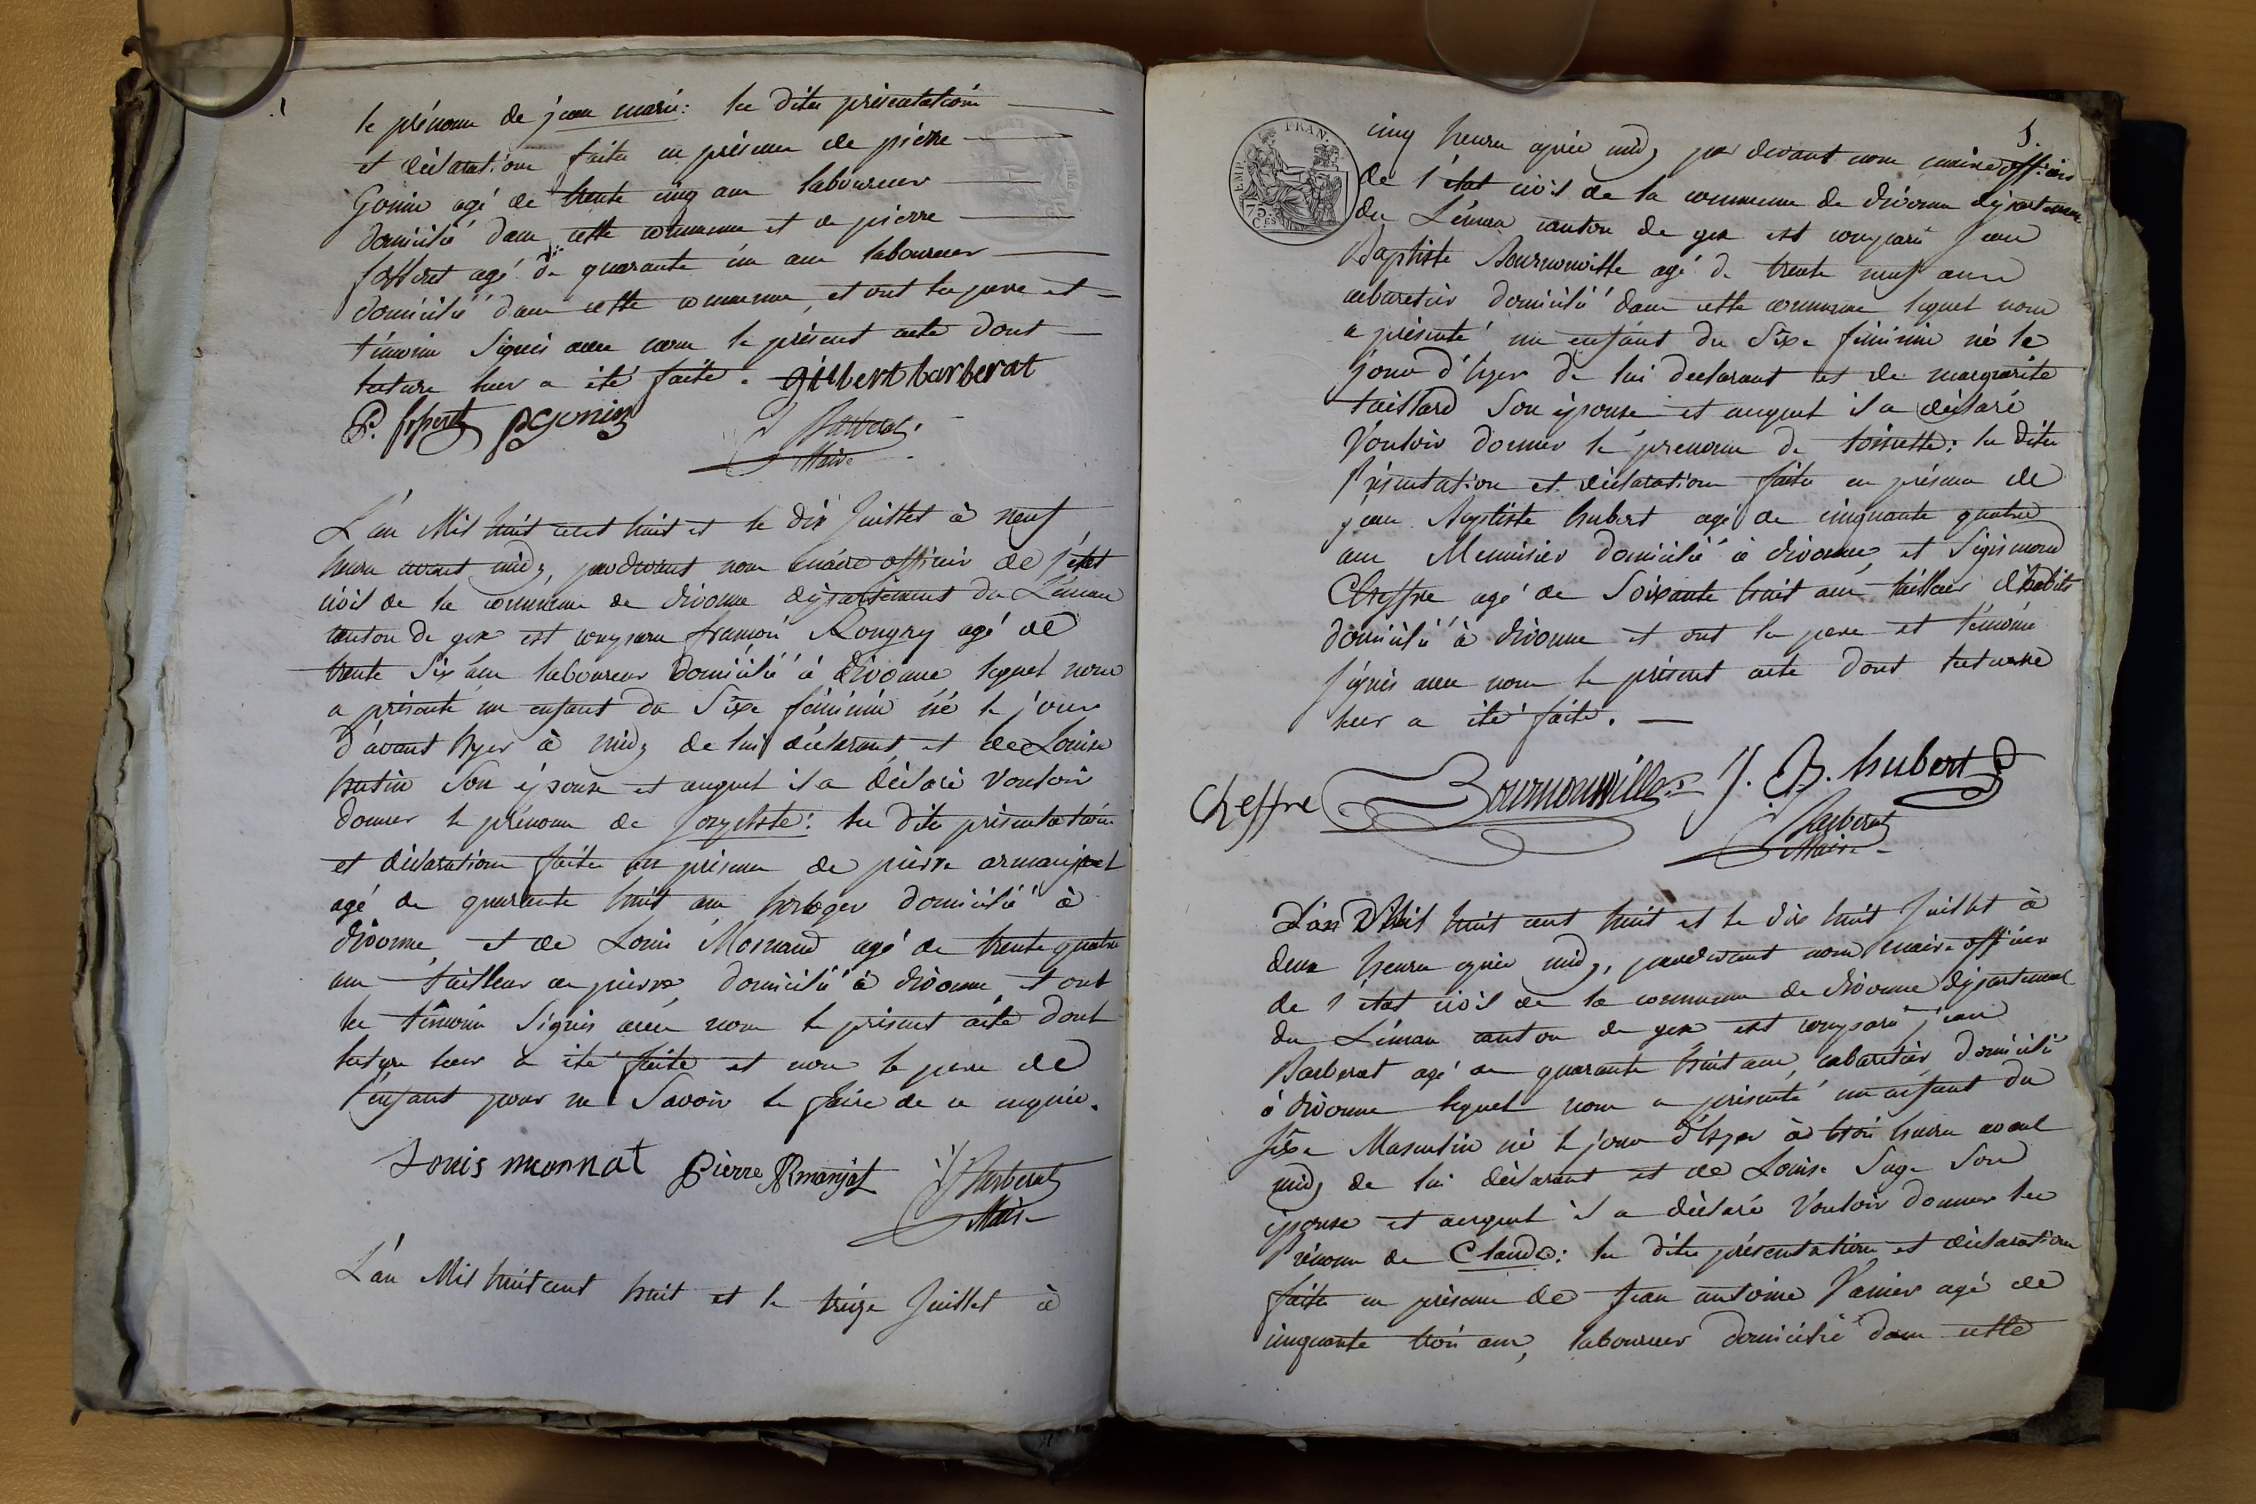 le prénom de jean marie: les dites présentation
et déclaration faites en présence de pierre
Gonin agé de trente cinq ans laboureur
domicilié dans cette commune et de pierre
agé de quarante un ans laboureur
domicilié dans cette commune, et ont les pere et
témoins signés avec nous le présent acte dont
lecture leur a été faite. gilbert barberat
P. pgonin
J Barberat
Maire
L'an Mil huit cent huit et le dix Juillet à neuf
heures avant midy, pardevant nous maire officier de l'état
civil de la commune de divonne département du Léman
canton de gex est comparu françois agé de
trente six ans laboureur domicilié à divonne lequel nous
a présenté un enfant du sexe féminin né le jour
d'avant hyer à midy de lui déclarant et de Louise
hutin son épouse et auquel il a déclaré vouloir
donner le prénom de : les dites présentation
et déclaration faites en présence de pierre armanjat
agé de quarante huit ans horloger domicilié à
divonne, et de Louis Monnand agé de trente quatre
ans tailleur de pierre, domicilié à divonne et ont
les témoins signés avec nous le présent acte dont
lecture leur a été faite et non le pere de
l'enfant pour ne savoir le faire de ce enquis.
Louis monnat Pierre Armanjat J Barberat
Maire
L'an Mil huit cent huit et le treize Juillet à
5.
EMP. FRAN.
75 CES
cinq heures après midy par devant nous maire officier
de l'état civil de la commune de divonne département
du Léman canton de gex est comparu Jean
Baptiste Bournonville agé de trente neuf ans
cabaretier domicilié dans cette commune lequel nous
a présenté un enfant du sexe féminin né le
jour d'hyer de lui declarant et de marguerite
taillard son épouse et auquel il a déclaré
vouloir donner le prenom de toinette: les dites
Présentation et déclaration faites en présence de
jean Baptiste hubert agé de cinquante quatre
ans Menuisier domicilié à divonne, et Sigismond
Cheffre agé de soixante huit ans tailleur d'habits
domicilié à divonne et ont les pere et témoins
signés avec nous le présent acte dont lecture
leur a été faite.
Cheffre Bournonville J. B. hubert
J Barberat
Maire
L'an Mil huit cent huit et le dix huit Juillet à
deux heures après midy, pardevant nous maire officier
de l'état civil de la commune de divonne département
du Léman canton de gex est comparu jean
Barberat agé de quarante huit ans, cabaretier domicilié
à divonne lequel nous a présenté un enfant du
sexe Masculin né le jour d'hyer à trois heures avant
midy de lui déclarant et de Louise Sage son
épouse et auquel il a déclaré vouloir donner les
Prénom de Claude: les dites présentation et déclaration
faites en présence de Jean antoine Vanier agé de
cinquante trois ans, laboureur domicilié dans cette